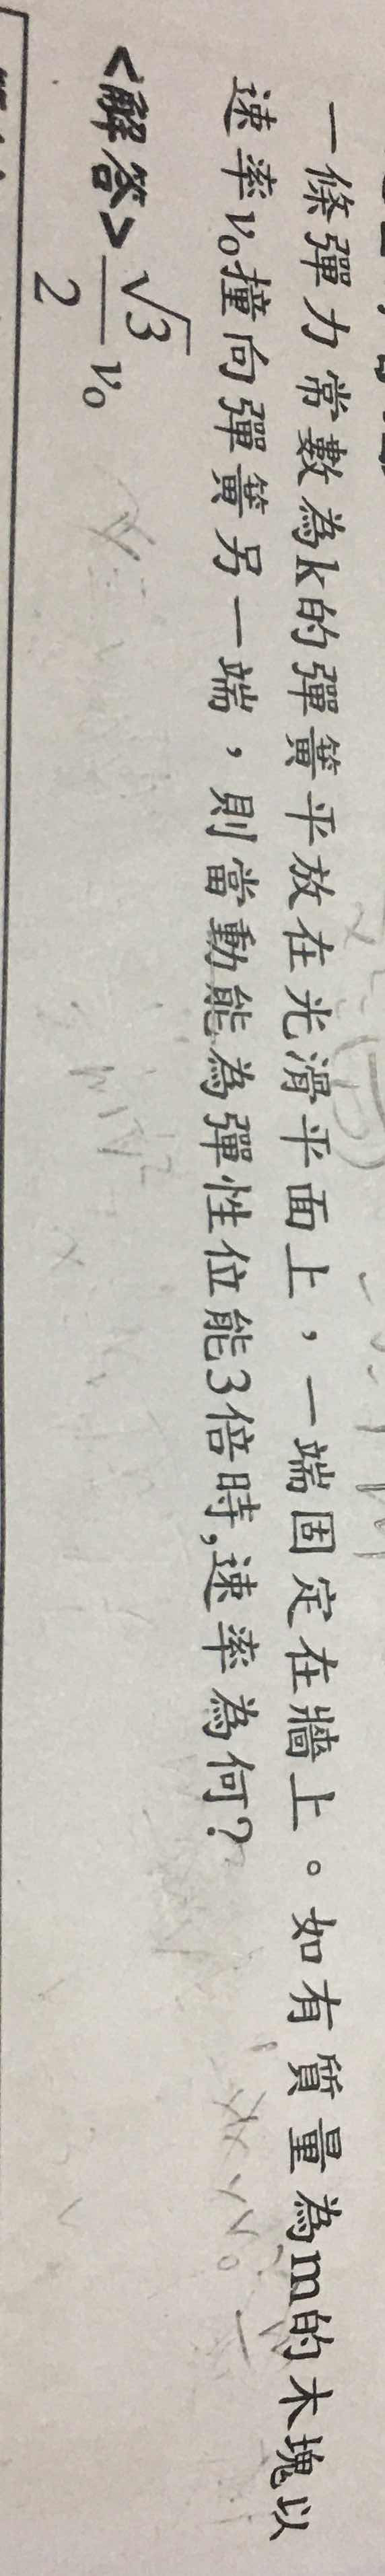 一條彈力常數為k的彈簧平放在光滑平面上，一端固定在牆上。如有質量為m的木塊以
速率v₀撞向彈簧另一端，則當動能為彈性位能3倍時,速率為何?
<解答> √3/2 v₀